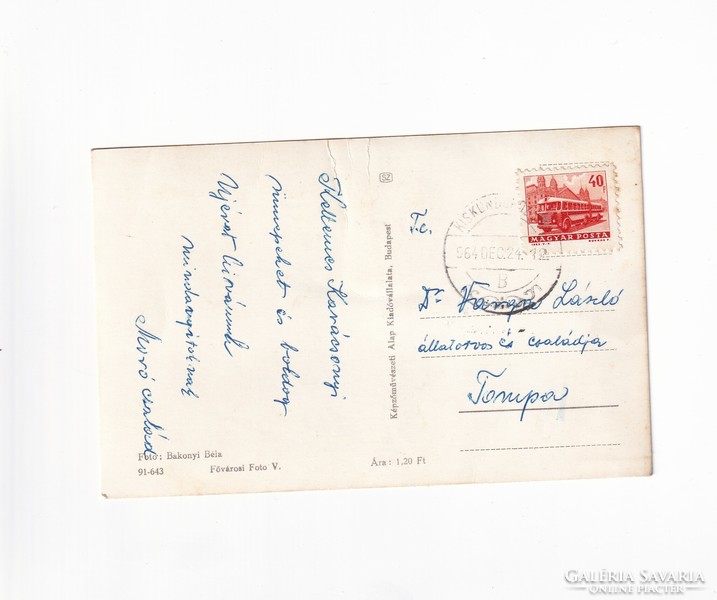 Kellemes Karácsonyi
ünnepeket és boldog
Ujévet kivánunk
mindanyitoknak
Moró család
Foto: Bakonyi Béla
91-643 Fővárosi Foto V.
Ára: 1,20 Ft
Képzőművészeti Alap Kiadóvállalata, Budapest
40
MAGYAR POSTA
964 DEC. 24.
B
T.c.
Dr Varga László
állatorvos és családja
Tompa
GALÉRIA SAVARIA
ONLINE PIACTÉR